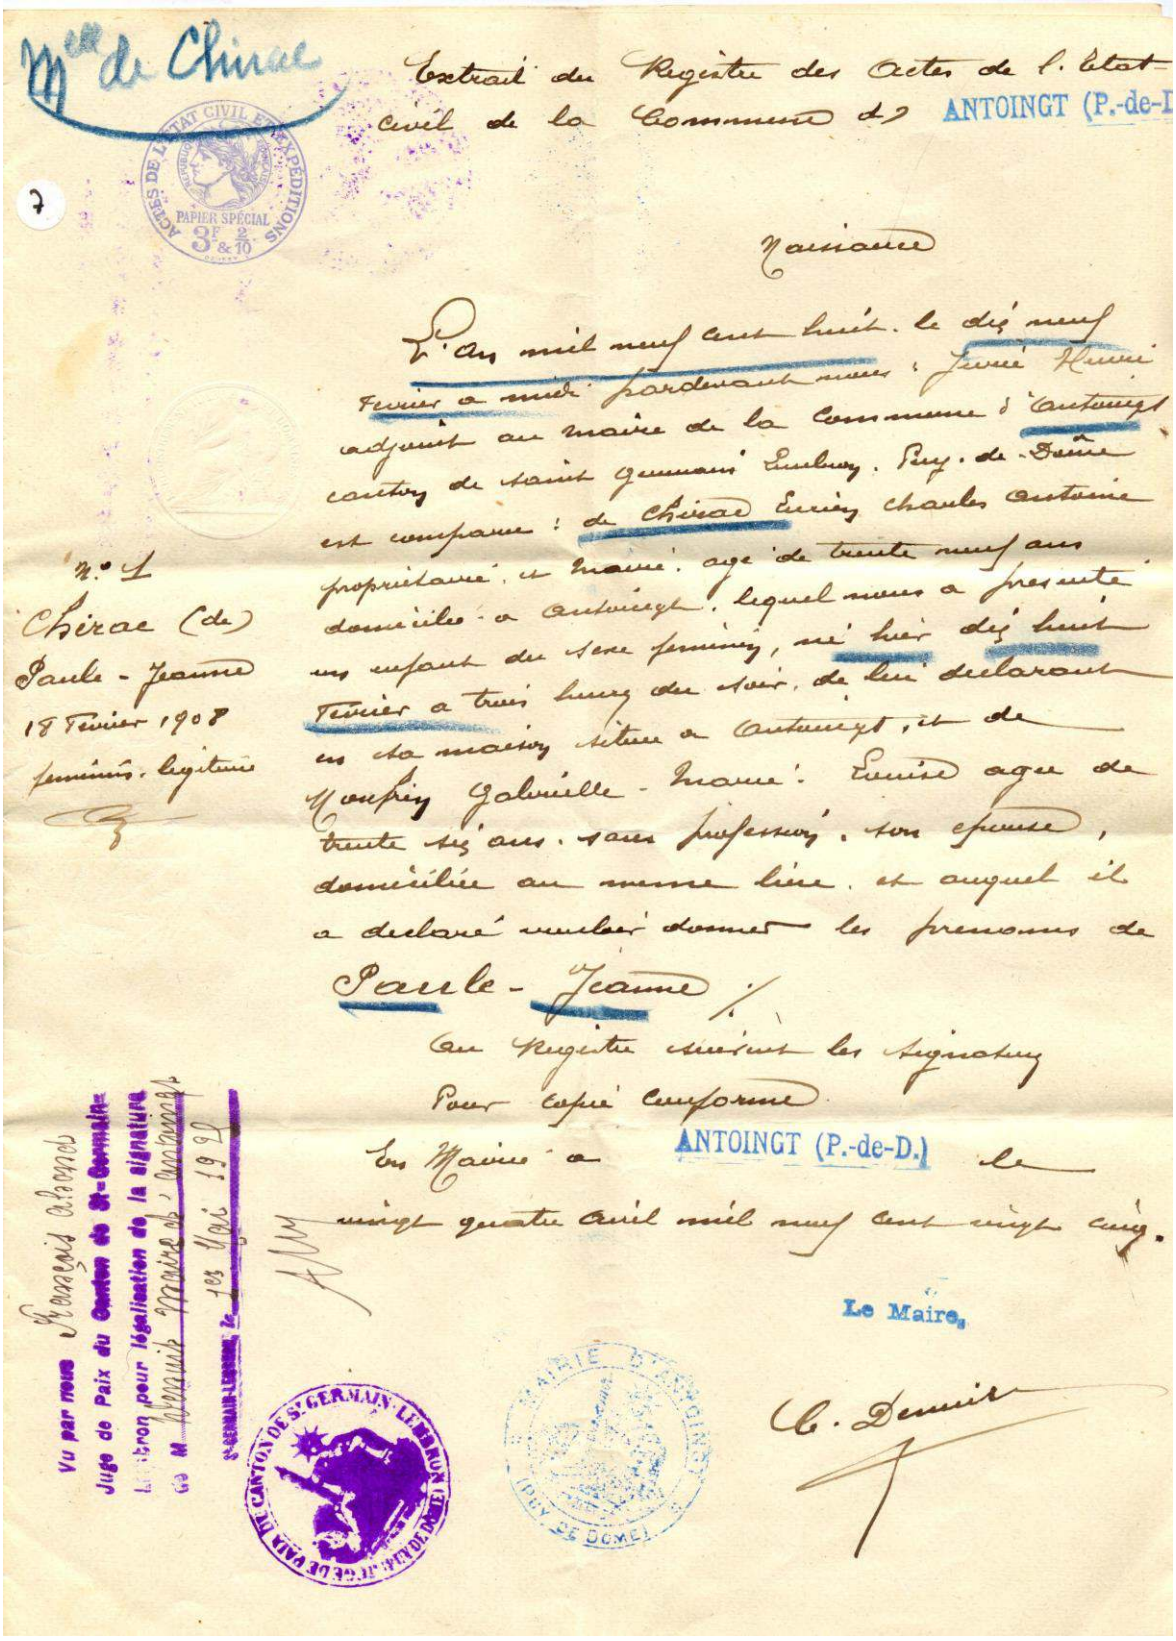 Melle de Chirac
Extrait du Registre des Actes de l'Etat-
civil de la Commune d' ANTOINGT (P.-de-D
ACTES DE L'ETAT CIVIL ET EXPÉDITIONS
PAPIER SPÉCIAL
3F & 2/10
7
Naissance
L'an mil neuf cent huit. le dix neuf
Fevrier a midi pardevant nous : Henri
adjoint au maire de la Commune d'Antoingt
canton de saint Germain Lembron. Puy-de-Dôme
est comparu : de Chirac Lucien Charles Antoine
propriétaire, et Maire. agé de trente neuf ans
domicilié a Antoingt. lequel nous a presenté
un enfant du sexe feminin, né hier dix huit
Fevrier a trois heures du soir, de lui declarant
en sa maison située a Antoingt, et de
Monfrin Gabrielle-Marie-Louise agée de
trente six ans. sans profession, son epouse,
domiciliée au meme lieu. et auquel il
a declaré vouloir donner les prenoms de
Paule-Jeanne ./.
Au Registre suivent les signatures
Pour copie conforme
En Mairie a ANTOINGT (P.-de-D.) le
vingt quatre Avril mil neuf cent vingt cinq.
Le Maire,
N° 1
Chirac (de)
Paule-Jeanne
18 Fevrier 1908
feminin. legitime
Vu par nous François
Juge de Paix du Canton de St-Germain-
Lembron pour légalisation de la signature
de M Maire d'Antoingt
St-GERMAIN-LEMBRON, le 1er Mai 19
JUGE DE PAIX DE CANTON DE St GERMAIN-LEMBRON (PUY DE DOME)
MAIRIE D'ANTOINGT
(PUY DE DOME)